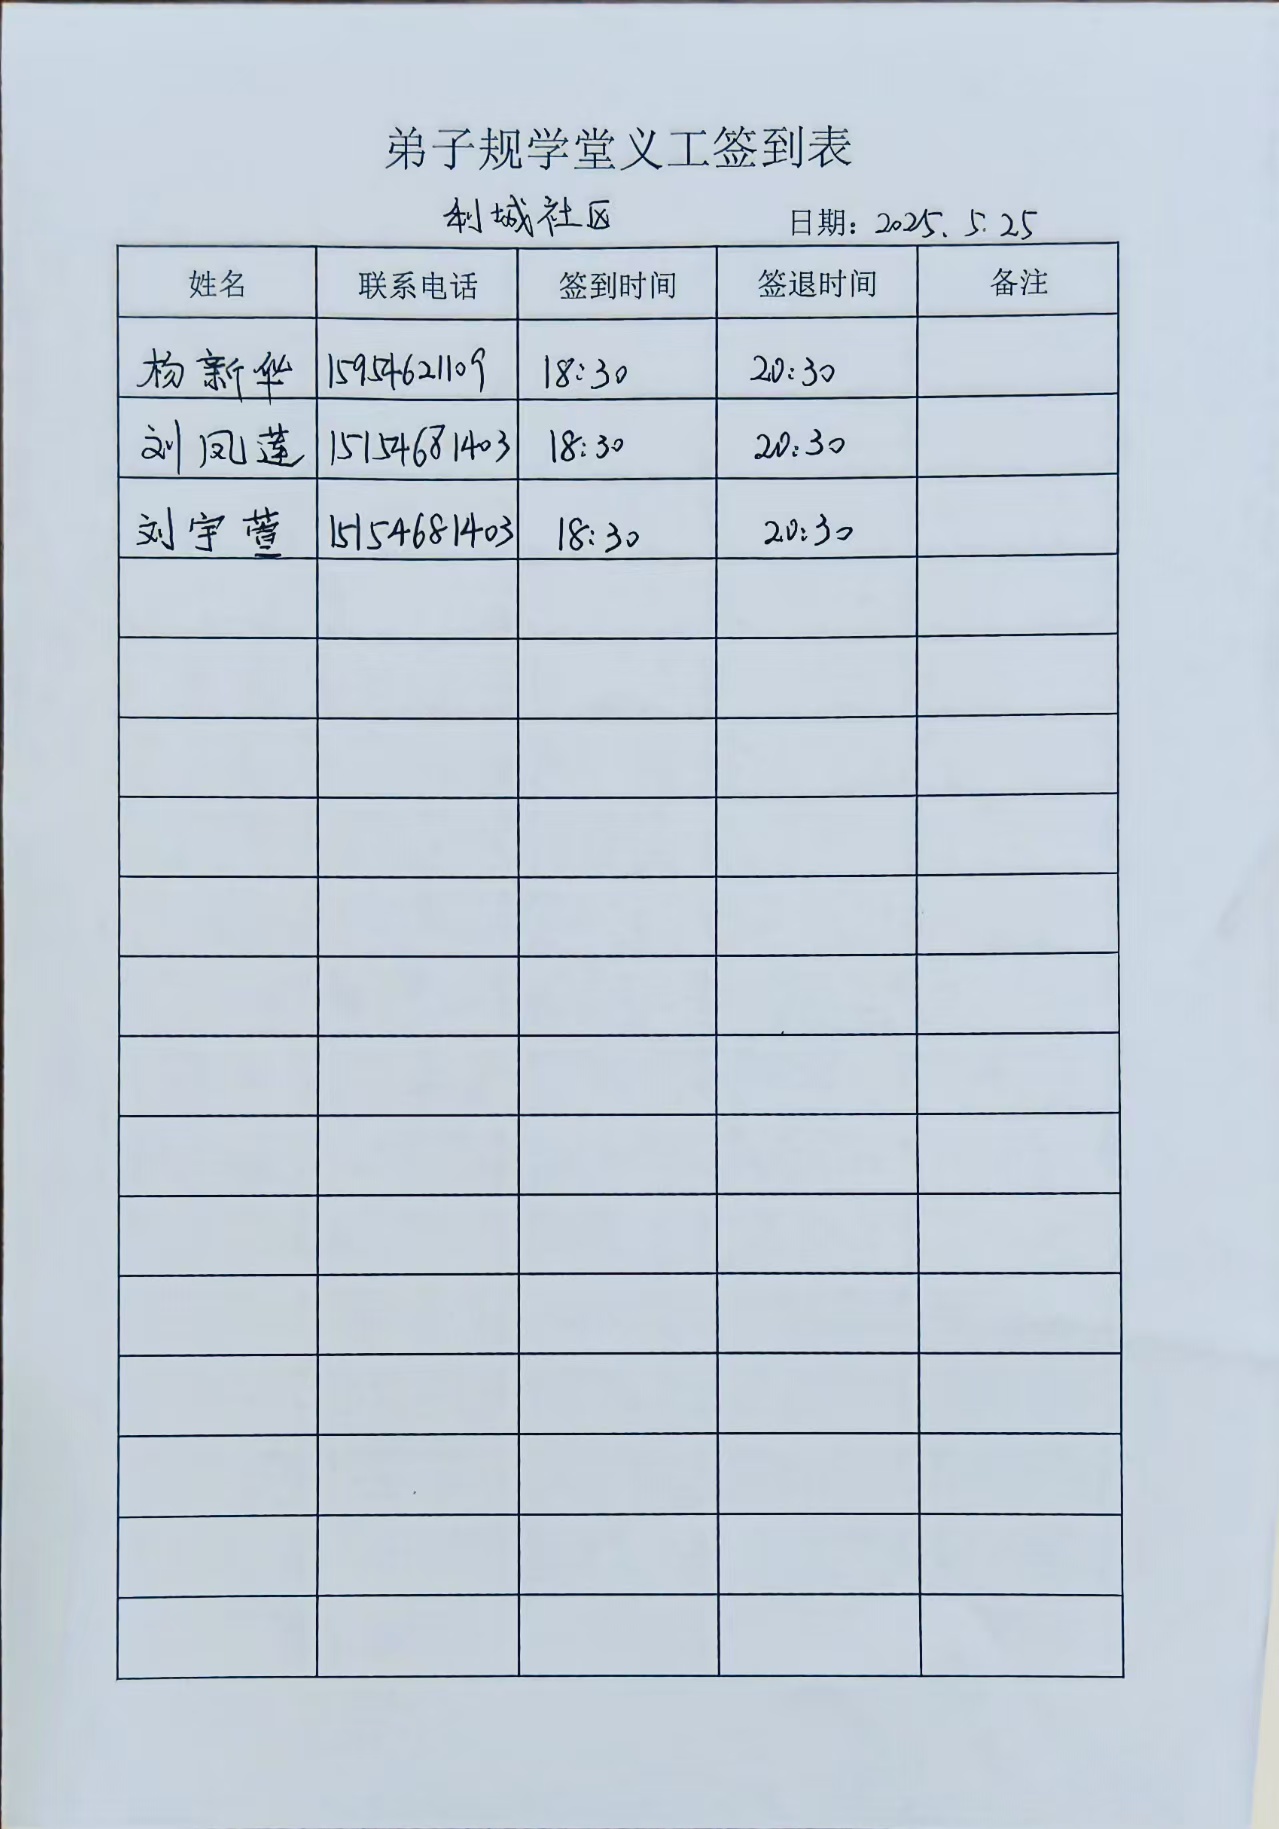 弟子规学堂义工签到表
利城社区 日期：2025.5.25
姓名 联系电话 签到时间 签退时间 备注
杨新华 15954621109 18:30 20:30
刘凤莲 15154681403 18:30 20:30
刘宇萱 15154681403 18:30 20:30